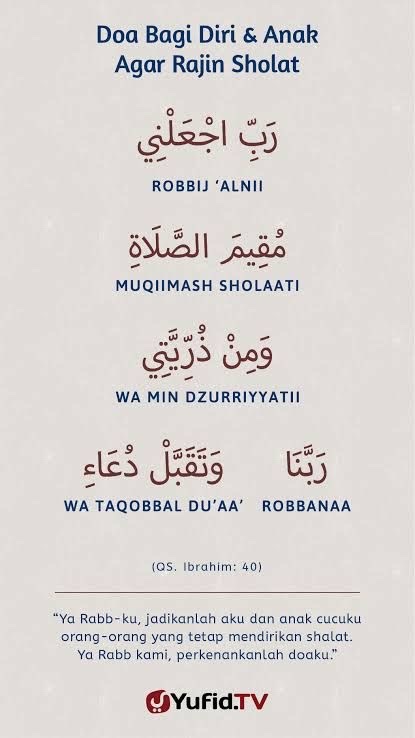 Doa Bagi Diri & Anak
Agar Rajin Sholat
رَبِّ اجْعَلْنِي
ROBBIJ ‘ALNII
مُقِيمَ الصَّلَاةِ
MUQIIMASH SHOLAATI
وَمِنْ ذُرِّيَّتِي
WA MIN DZURRIYYATII
رَبَّنَا وَتَقَبَّلْ دُعَاءِ
WA TAQOBBAL DU’AA’ ROBBANAA
(QS. Ibrahim: 40)
“Ya Rabb-ku, jadikanlah aku dan anak cucuku
orang-orang yang tetap mendirikan shalat.
Ya Rabb kami, perkenankanlah doaku.”
Yufid.TV